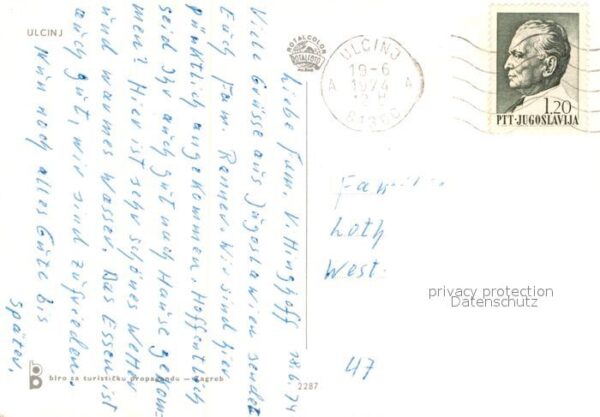 ULCINJ
ROTALCOLOR
ROTALFOTO
ULCINJ
19-6
1974
A A
12 H
PTT-JUGOSLAVIJA
1.20
Liebe Fam. V. Hinghoff 18.6.74
Viele Grüsse aus Jugoslawien sendet
Euch Fam. Renner. Wir sind hier
pünktlich angekommen. Hoffentlich
seid Ihr auch gut nach Hause gekom-
men? Hier ist sehr schönes Wetter
und warmes Wasser. Das Essen ist
auch gut, wir sind zufrieden.
Nun noch alles Gute bis
später.
Familie
Loth
West
47
privacy protection
Datenschutz
biro za turističku propagandu — zagreb
2287